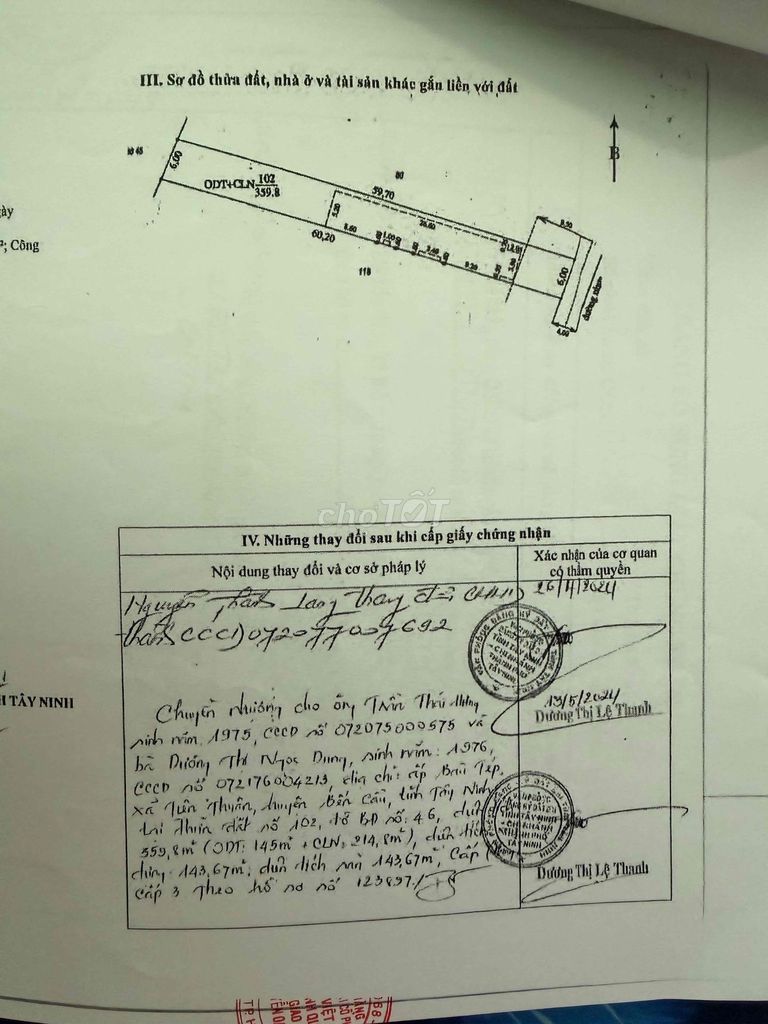 III. Sơ đồ thửa đất, nhà ở và tài sản khác gắn liền với đất
B
6,00
ODT+CLN 102
359.8
80
59,70
26.60
5.50
60,20
8.60
1.00
118
9.20
9.50
6,00
4,00
ày
²; Công
H TÂY NINH
choTỐT
IV. Những thay đổi sau khi cấp giấy chứng nhận
Nội dung thay đổi và cơ sở pháp lý
Xác nhận của cơ quan
có thẩm quyền
Nguyễn thay đổi CMND
thành CCCD 072077007692
26/4/2024
Dương Thị Lệ Thanh
Chuyển nhượng cho ông Trần Thái
sinh năm 1975, CCCD số 072075000575 và
bà Dương Thị Ngọc Dung, sinh năm: 1976,
CCCD số 072176004213, địa chỉ: ấp Bàu Tép,
xã Tiên Thuận, huyện Bến Cầu, tỉnh Tây Ninh
tại thửa đất số 102, tờ BĐ số: 46, diện
359,8m² (ODT: 145m² + CLN: 214,8m²), diện tích
dựng: 143,67m², diện tích sàn 143,67m², Cấp
cấp 3 theo hồ sơ số 123897
13/5/2024
Dương Thị Lệ Thanh